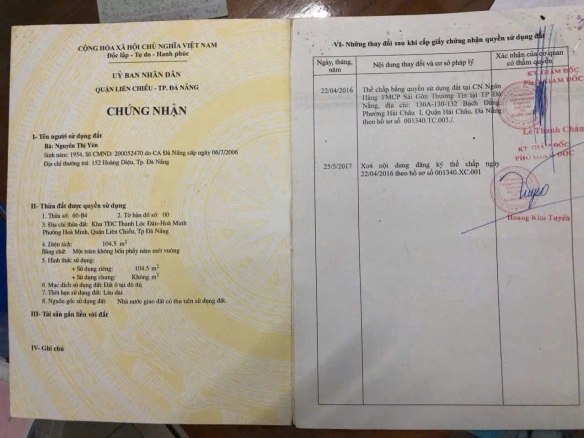 CỘNG HÒA XÃ HỘI CHỦ NGHĨA VIỆT NAM
Độc lập - Tự do - Hạnh phúc
ỦY BAN NHÂN DÂN
QUẬN LIÊN CHIỂU- TP. ĐÀ NẴNG
CHỨNG NHẬN
I- Tên người sử dụng đất
Bà: Nguyễn Thị Yên
Sinh năm 1954, Số CMND: 200052470 do CA Đà Nẵng cấp ngày 06/7/2006
Địa chỉ thường trú: 152 Hoàng Diệu, Tp. Đà Nẵng
II- Thửa đất được quyền sử dụng
1. Thửa số: 60-B4 2. Tờ bản đồ số: 00
3. Địa chỉ thửa đất: Khu TĐC Thanh Lộc Đán-Hoà Minh
Phường Hoà Minh, Quận Liên Chiểu, Tp Đà Nẵng
4. Diện tích: 104.5 m2
Bằng chữ: Một trăm không bốn phẩy năm mét vuông
5. Hình thức sử dụng:
+ Sử dụng riêng: 104.5 m2
+ Sử dụng chung: Không m2
6. Mục đích sử dụng đất: Đất ở tại đô thị
7. Thời hạn sử dụng đất: Lâu dài
8. Nguồn gốc sử dụng đất: Nhà nước giao đất có thu tiền sử dụng đất.
III- Tài sản gắn liền với đất
IV- Ghi chú
VI- Những thay đổi sau khi cấp giấy chứng nhận quyền sử dụng đất
Ngày, tháng, năm
Nội dung thay đổi và cơ sở pháp lý
Xác nhận của cơ quan có thẩm quyền
22/04/2016
Thế chấp bằng quyền sử dụng đất tại CN Ngân
Hàng TMCP Sài Gòn Thương Tín tại TP Đà
Nẵng, địa chỉ: 130A-130-132 Bạch Đằng,
Phường Hải Châu 1, Quận Hải Châu, Đà Nẵng
theo hồ sơ 001340.TC.003./.
KT GIÁM ĐỐC
PHÓ GIÁM ĐỐC
Lê Thanh Châu
25/5/2017
Xoá nội dung đăng ký thế chấp ngày
22/04/2016 theo hồ sơ số 001340.XC.001
KT GIÁM ĐỐC
PHÓ GIÁM ĐỐC
Hoàng Kim Tuyến